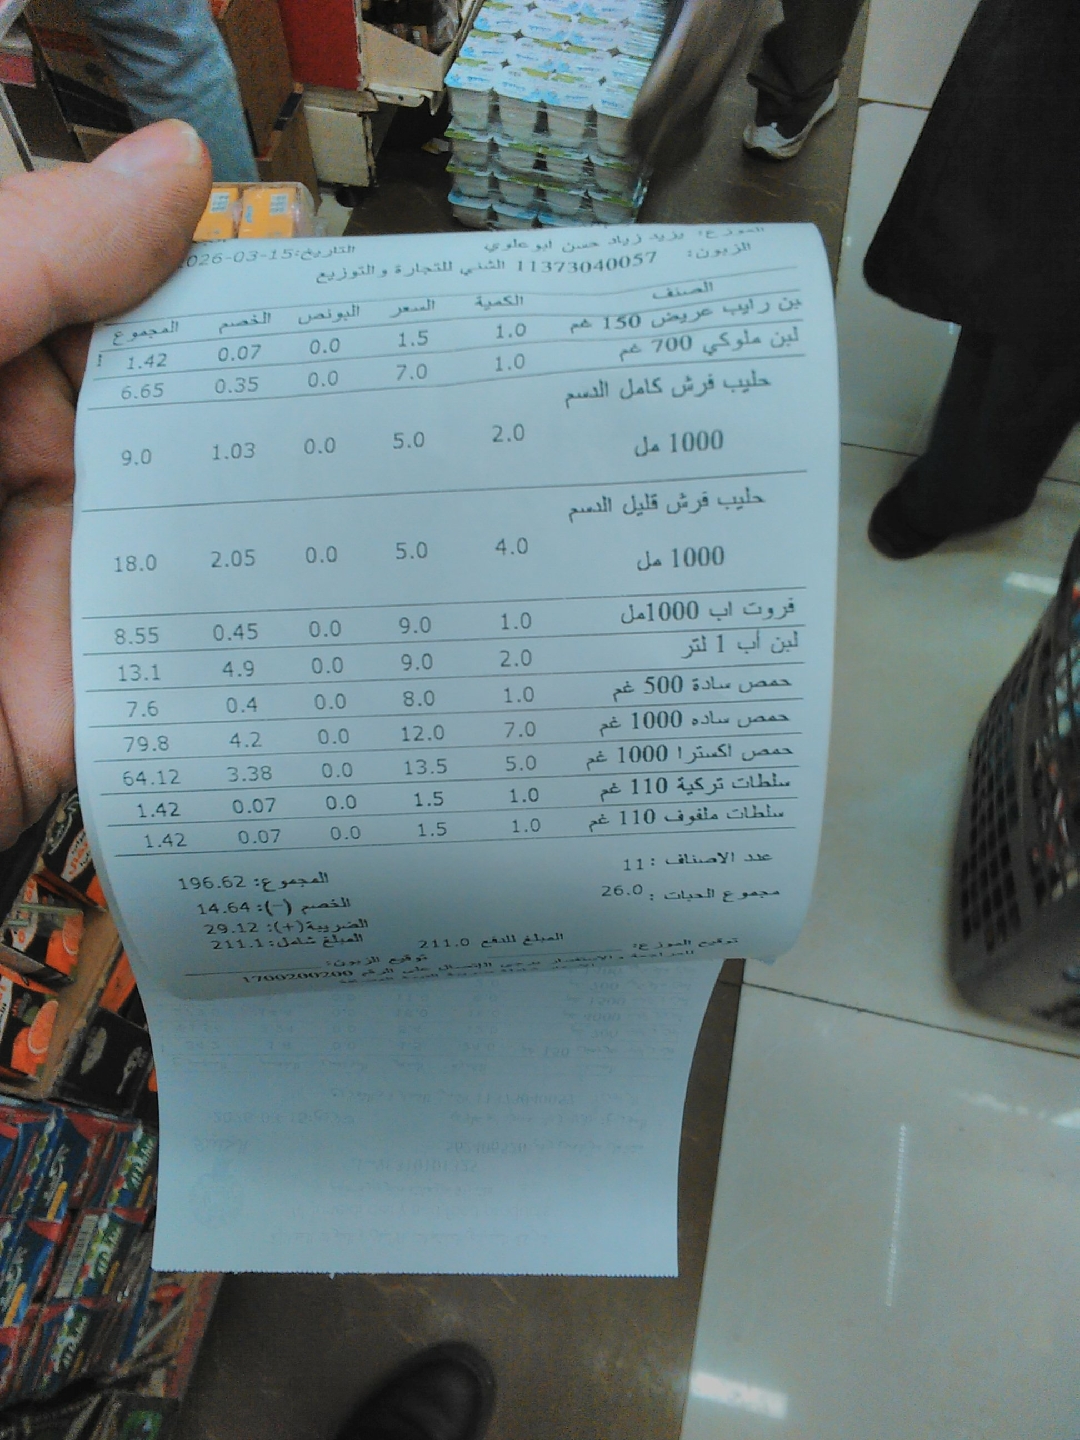 الموزع: يزيد زياد حسن ابو علوي التاريخ:2026-03-15
الزبون: 11373040057 الشني للتجارة والتوزيع
الصنف الكمية السعر البونص الخصم المجموع
لبن رايب عريض 150 غم 1.0 1.5 0.0 0.07 1.42
لبن ملوكي 700 غم 1.0 7.0 0.0 0.35 6.65
حليب فرش كامل الدسم
1000 مل 2.0 5.0 0.0 1.03 9.0
حليب فرش قليل الدسم
1000 مل 4.0 5.0 0.0 2.05 18.0
فروت اب 1000مل 1.0 9.0 0.0 0.45 8.55
لبن أب 1 لتر 2.0 9.0 0.0 4.9 13.1
حمص سادة 500 غم 1.0 8.0 0.0 0.4 7.6
حمص ساده 1000 غم 7.0 12.0 0.0 4.2 79.8
حمص اكسترا 1000 غم 5.0 13.5 0.0 3.38 64.12
سلطات تركية 110 غم 1.0 1.5 0.0 0.07 1.42
سلطات ملفوف 110 غم 1.0 1.5 0.0 0.07 1.42
عدد الاصناف: 11 المجموع: 196.62
مجموع الحبات: 26.0 الخصم (-): 14.64
الضريبة(+): 29.12
المبلغ للدفع 211.0 المبلغ شامل: 211.1
توقيع الموزع: توقيع الزبون:
للمراجعة والاستفسار يرجى الاتصال على الرقم 1700200200